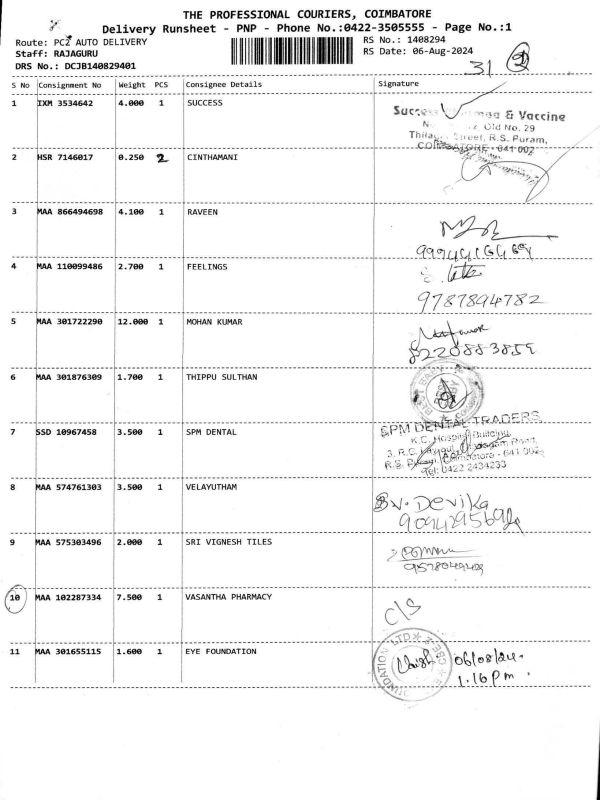 THE PROFESSIONAL COURIERS, COIMBATORE
Delivery Runsheet - PNP - Phone No.:0422-3505555 - Page No.:1
Route: PC2 AUTO DELIVERY
RS No.: 1408294
Staff: RAJAGURU
RS Date: 06-Aug-2024
DRS No.: DCJB140829401
31 2
S No Consignment No Weight PCS Consignee Details Signature
1 IXM 3534642 4.000 1 SUCCESS
& Vaccine
Old No. 29
Street, R.S. Puram,
COIMBATORE - 641 002
2 HSR 7146017 0.250 2 CINTHAMANI
3 MAA 866494698 4.100 1 RAVEEN
4 MAA 110099486 2.700 1 FEELINGS
9787894782
5 MAA 301722290 12.000 1 MOHAN KUMAR
8220883859
6 MAA 301876309 1.700 1 THIPPU SULTHAN
7 SSD 10967458 3.500 1 SPM DENTAL
SPM DENTAL TRADERS
K.C. Hospital Building,
Coimbatore - 641 002
Tel: 0422 2434233
8 MAA 574761303 3.500 1 VELAYUTHAM
V. Devika
9 MAA 575303496 2.000 1 SRI VIGNESH TILES
10 MAA 102287334 7.500 1 VASANTHA PHARMACY
C/S
11 MAA 301655115 1.600 1 EYE FOUNDATION
06/08/24
1.10 pm